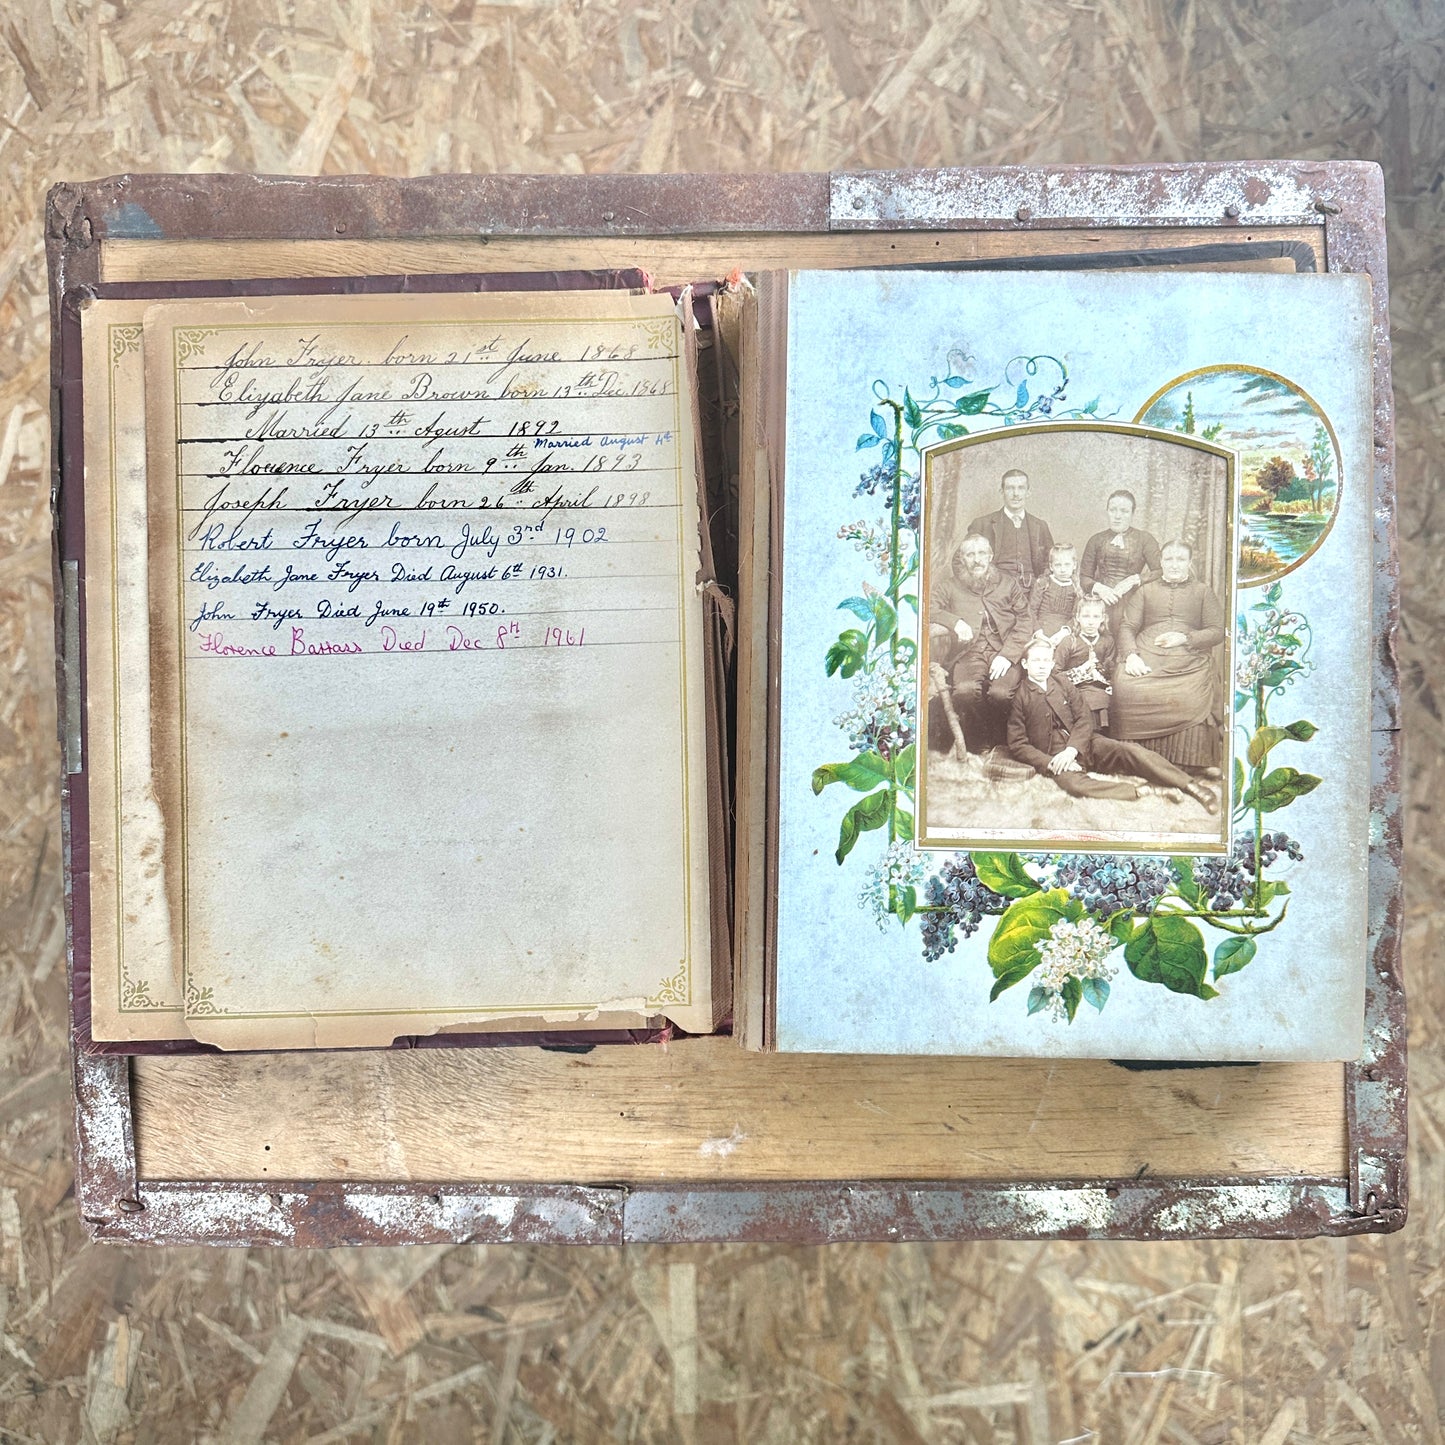 John Fryer. born 21st June 1868
Elizabeth Jane Brown born 13th Dec. 1868
Married 13th Agust 1892
Married August 4th
Florence Fryer born 9th Jan. 1893
Joseph Fryer born 26th April 1898
Robert Fryer born July 3rd 1902
Elizabeth Jane Fryer Died August 6th 1931.
John Fryer Died June 19th 1950.
Florence Barrass Died Dec 8th 1961